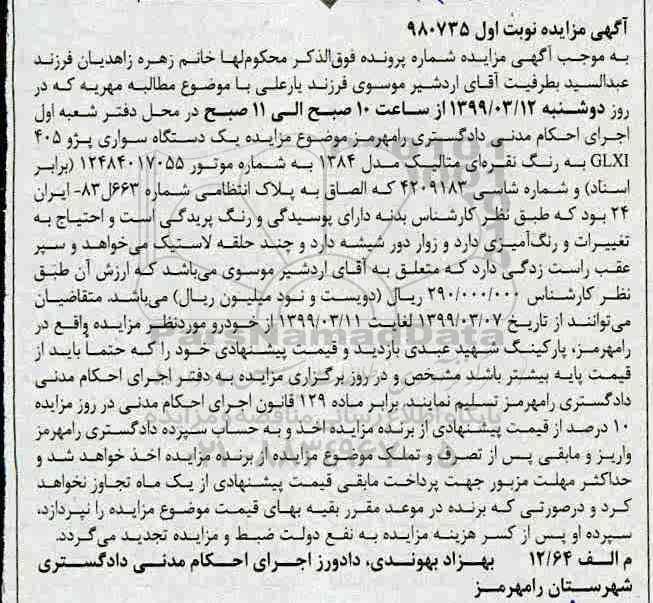 آگهی مزایده نوبت اول ۹۸۰۷۳۵
به موجب آگهی مزایده شماره پرونده فوق‌الذکر محکوم‌لها خانم زهره زاهدیان فرزند
عبدالسید بطرفیت آقای اردشیر موسوی فرزند یارعلی با موضوع مطالبه مهریه که در
روز دوشنبه ۱۳۹۹/۰۳/۱۲ از ساعت ۱۰ صبح الی ۱۱ صبح در محل دفتر شعبه اول
اجرای احکام مدنی دادگستری رامهرمز موضوع مزایده یک دستگاه سواری پژو ۴۰۵
GLXI به رنگ نقره‌ای متالیک مدل ۱۳۸۴ به شماره موتور ۱۲۴۸۴۰۱۷۰۵۵ (برابر
اسناد) و شماره شاسی ۴۲۰۹۱۸۳ که الصاق به پلاک انتظامی شماره ۶۶۳ل۸۳- ایران
۲۴ بود که طبق نظر کارشناس بدنه دارای پوسیدگی و رنگ پریدگی است و احتیاج به
تغییرات و رنگ‌آمیزی دارد و زوار دور شیشه دارد و چند حلقه لاستیک می‌خواهد و سپر
عقب راست زدگی دارد که متعلق به آقای اردشیر موسوی می‌باشد که ارزش آن طبق
نظر کارشناس ۲۹۰/۰۰۰/۰۰۰ ریال (دویست و نود میلیون ریال) می‌باشد. متقاضیان
می‌توانند از تاریخ ۱۳۹۹/۰۳/۰۷ لغایت ۱۳۹۹/۰۳/۱۱ از خودرو موردنظر مزایده واقع در
رامهرمز، پارکینگ شهید عبدی بازدید و قیمت پیشنهادی خود را که حتماً باید از
قیمت پایه بیشتر باشد مشخص و در روز برگزاری مزایده به دفتر اجرای احکام مدنی
دادگستری رامهرمز تسلیم نمایند. برابر ماده ۱۲۹ قانون اجرای احکام مدنی در روز مزایده
۱۰ درصد از قیمت پیشنهادی از برنده مزایده اخذ و به حساب سپرده دادگستری رامهرمز
واریز و مابقی پس از تصرف و تملک موضوع مزایده از برنده مزایده اخذ خواهد شد و
حداکثر مهلت مزبور جهت پرداخت مابقی قیمت پیشنهادی از یک ماه تجاوز نخواهد
کرد و درصورتی که برنده در موعد مقرر بقیه بهای قیمت موضوع مزایده را نپردازد،
سپرده او پس از کسر هزینه مزایده به نفع دولت ضبط و مزایده تجدید می‌گردد.
م الف ۱۲/۶۴ بهزاد بهوندی، دادورز اجرای احکام مدنی دادگستری
شهرستان رامهرمز
ParsNamadData
پایگاه اطلاع رسانی مناقصه و مزایده